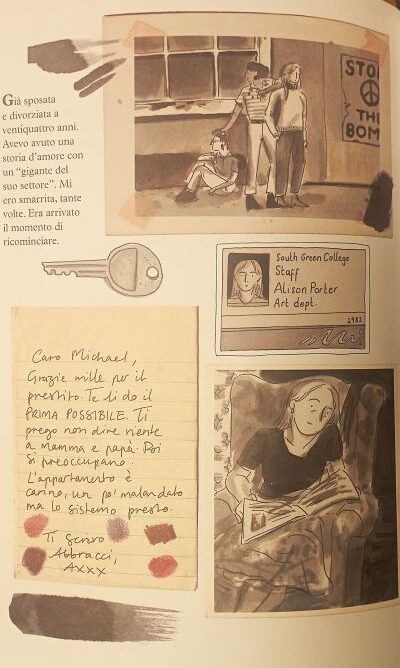 Già sposata
e divorziata a
ventiquattro anni.
Avevo avuto una
storia d'amore con
un "gigante del
suo settore". Mi
ero smarrita, tante
volte. Era arrivato
il momento di
ricominciare.
STOP
THE
BOMB
South Green College
Staff
Alison Porter
Art dept.
1981
Caro Michael,
Grazie mille per il
prestito. Te li do il
PRIMA POSSIBILE. Ti
prego non dire niente
a mamma e papà. Poi
si preoccupano.
L'appartamento è
carino, un po' malandato
ma lo sistemo presto.
Ti scrivo
Abbracci,
AXXX